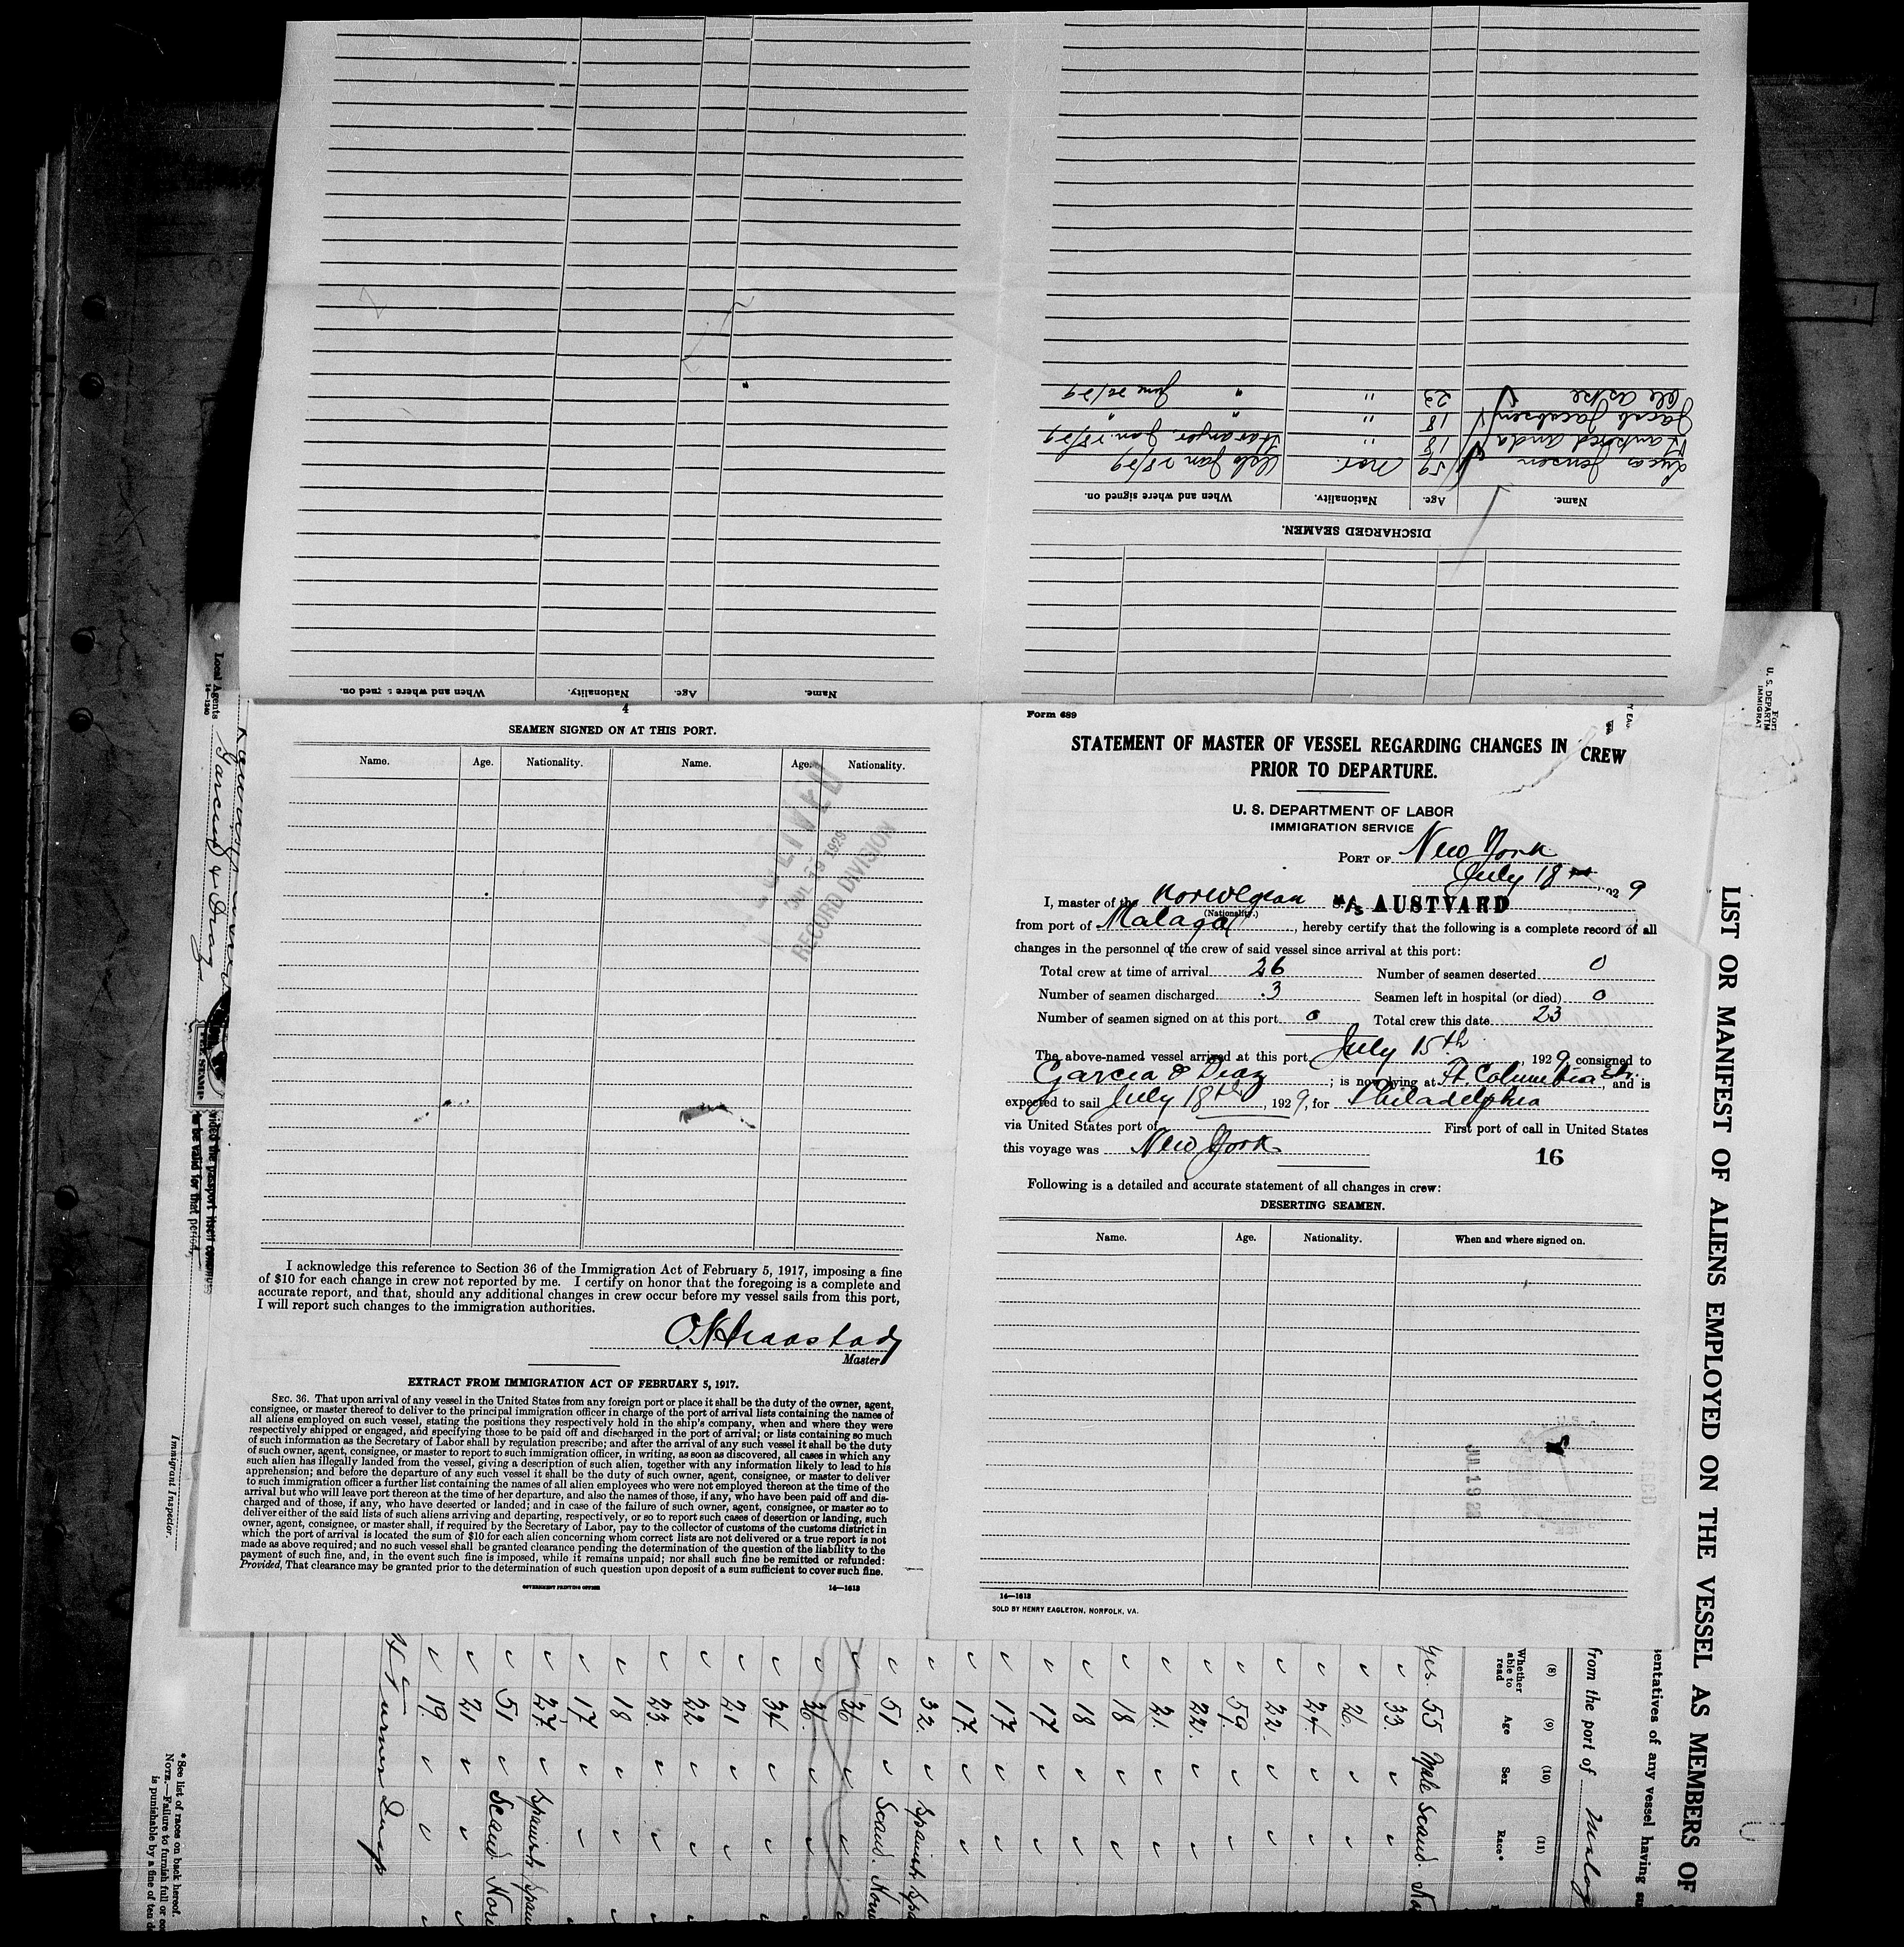 Name. Age. Nationality. When and where signed on.
DISCHARGED SEAMEN.
Name. Age. Nationality. When and where signed on.
Jensen 59 Nor. Oslo Jan 28/29
18 " Jan. 28/29
Jacob Jacobsen 18 " " "
Ole Aske 23 " " June 20/29
4
SEAMEN SIGNED ON AT THIS PORT.
Name. Age. Nationality. Name. Age. Nationality.
1929
RECORD DIVISION
I acknowledge this reference to Section 36 of the Immigration Act of February 5, 1917, imposing a fine
of $10 for each change in crew not reported by me. I certify on honor that the foregoing is a complete and
accurate report, and that, should any additional changes in crew occur before my vessel sails from this port,
I will report such changes to the immigration authorities.
Master
EXTRACT FROM IMMIGRATION ACT OF FEBRUARY 5, 1917.
SEC. 36. That upon arrival of any vessel in the United States from any foreign port or place it shall be the duty of the owner, agent,
consignee, or master thereof to deliver to the principal immigration officer in charge of the port of arrival lists containing the names of
all aliens employed on such vessel, stating the positions they respectively hold in the ship's company, when and where they were
respectively shipped or engaged, and specifying those to be paid off and discharged in the port of arrival; or lists containing so much
of such information as the Secretary of Labor shall by regulation prescribe; and after the arrival of any such vessel it shall be the duty
of such owner, agent, consignee, or master to report to such immigration officer, in writing, as soon as discovered, all cases in which any
such alien has illegally landed from the vessel, giving a description of such alien, together with any information likely to lead to his
apprehension; and before the departure of any such vessel it shall be the duty of such owner, agent, consignee, or master to deliver
to such immigration officer a further list containing the names of all alien employees who were not employed thereon at the time of the
arrival but who will leave port thereon at the time of her departure, and also the names of those, if any, who have been paid off and dis-
charged and of those, if any, who have deserted or landed; and in case of the failure of such owner, agent, consignee, or master so to
deliver either of the said lists of such aliens arriving and departing, respectively, or so to report such cases of desertion or landing, such
owner, agent, consignee, or master shall, if required by the Secretary of Labor, pay to the collector of customs of the customs district in
which the port of arrival is located the sum of $10 for each alien concerning whom correct lists are not delivered or a true report is not
made as above required; and no such vessel shall be granted clearance pending the determination of the question of the liability to the
payment of such fine, and, in the event such fine is imposed, while it remains unpaid; nor shall such fine be remitted or refunded:
Provided, That clearance may be granted prior to the determination of such question upon deposit of a sum sufficient to cover such fine.
GOVERNMENT PRINTING OFFICE 14—1613
Form 689
STATEMENT OF MASTER OF VESSEL REGARDING CHANGES IN CREW
PRIOR TO DEPARTURE.
U. S. DEPARTMENT OF LABOR
IMMIGRATION SERVICE
PORT OF New York
July 18th, 1929
I, master of the Norwegian M/S AUSTVARD
(Nationality.)
from port of Malaga, hereby certify that the following is a complete record of all
changes in the personnel of the crew of said vessel since arrival at this port:
Total crew at time of arrival 26 Number of seamen deserted 0
Number of seamen discharged 3 Seamen left in hospital (or died) 0
Number of seamen signed on at this port 0 Total crew this date 23
The above-named vessel arrived at this port July 15th, 1929, consigned to
Garcia & Diaz; is now lying at Ft. Columbia St., and is
expected to sail July 18th, 1929, for Philadelphia
via United States port of First port of call in United States
this voyage was New York
16
Following is a detailed and accurate statement of all changes in crew:
DESERTING SEAMEN.
Name. Age. Nationality. When and where signed on.
14—1613
SOLD BY HENRY EAGLETON, NORFOLK, VA.
LIST OR MANIFEST OF ALIENS EMPLOYED ON THE VESSEL AS MEMBERS OF
entatives of any vessel having
from the port of
(8) (9) (10) (11)
Whether able to read Age Sex Race*
Yes. 55 Male Scand.
33
26
24
22
59
22
21
18
18
17
17
17
32 Spanish
51 Scand.
36
36
34
21
22
23
18
17
27 Spanish
51 Scand
21
19
Local Agents Garcia & Diaz
14—1240
Immigrant Inspector.
* See list of races on back hereof.
NOTE.—Failure to furnish full or
is punishable by a fine of ten